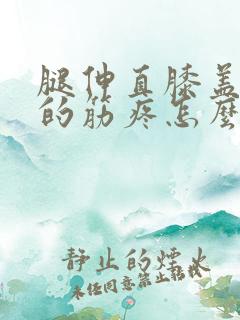 腿伸直膝盖
的筋疼怎麼
静止的煙火
未经同意禁止转载